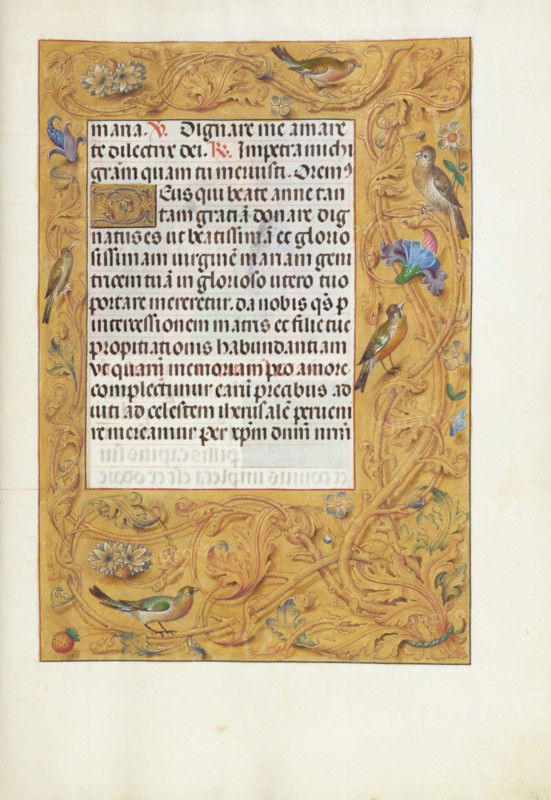 mana. V. Dignare me amare
te dilectrix dei. R. Impetra michi
grãm quam tu meruisti. Orem⁹
Deus qui beate anne tan
tam gratiã donare dig
natus es ut beatissimã et glorio
sissimam uirginẽ mariam geni
tricem tuã in glorioso utero tuo
portare mereretur. da nobis qs̃ p
intercessionem matris et filie tue
propitiationis habundantiam
vt quarũ memoriam pro amore
complectimur earũ precibus ad
iuti ad celestem iherusalẽ perueni
re mereamur per xpm dñm nrm